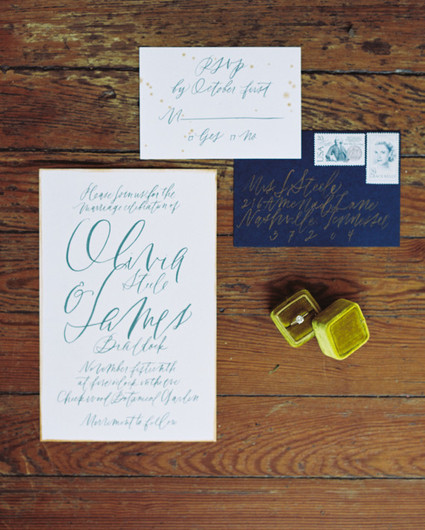 RSVP
by October first
M
Yes No
Mrs. L Steele
Lane
Nashville, Tennessee
3 7 2 0 9
Please join us for the
marriage celebration of
Olivia
Steele
& James
Braddock
November
at five o'clock in the eve
Cheekwood Botanical Garden
Merriment to follow